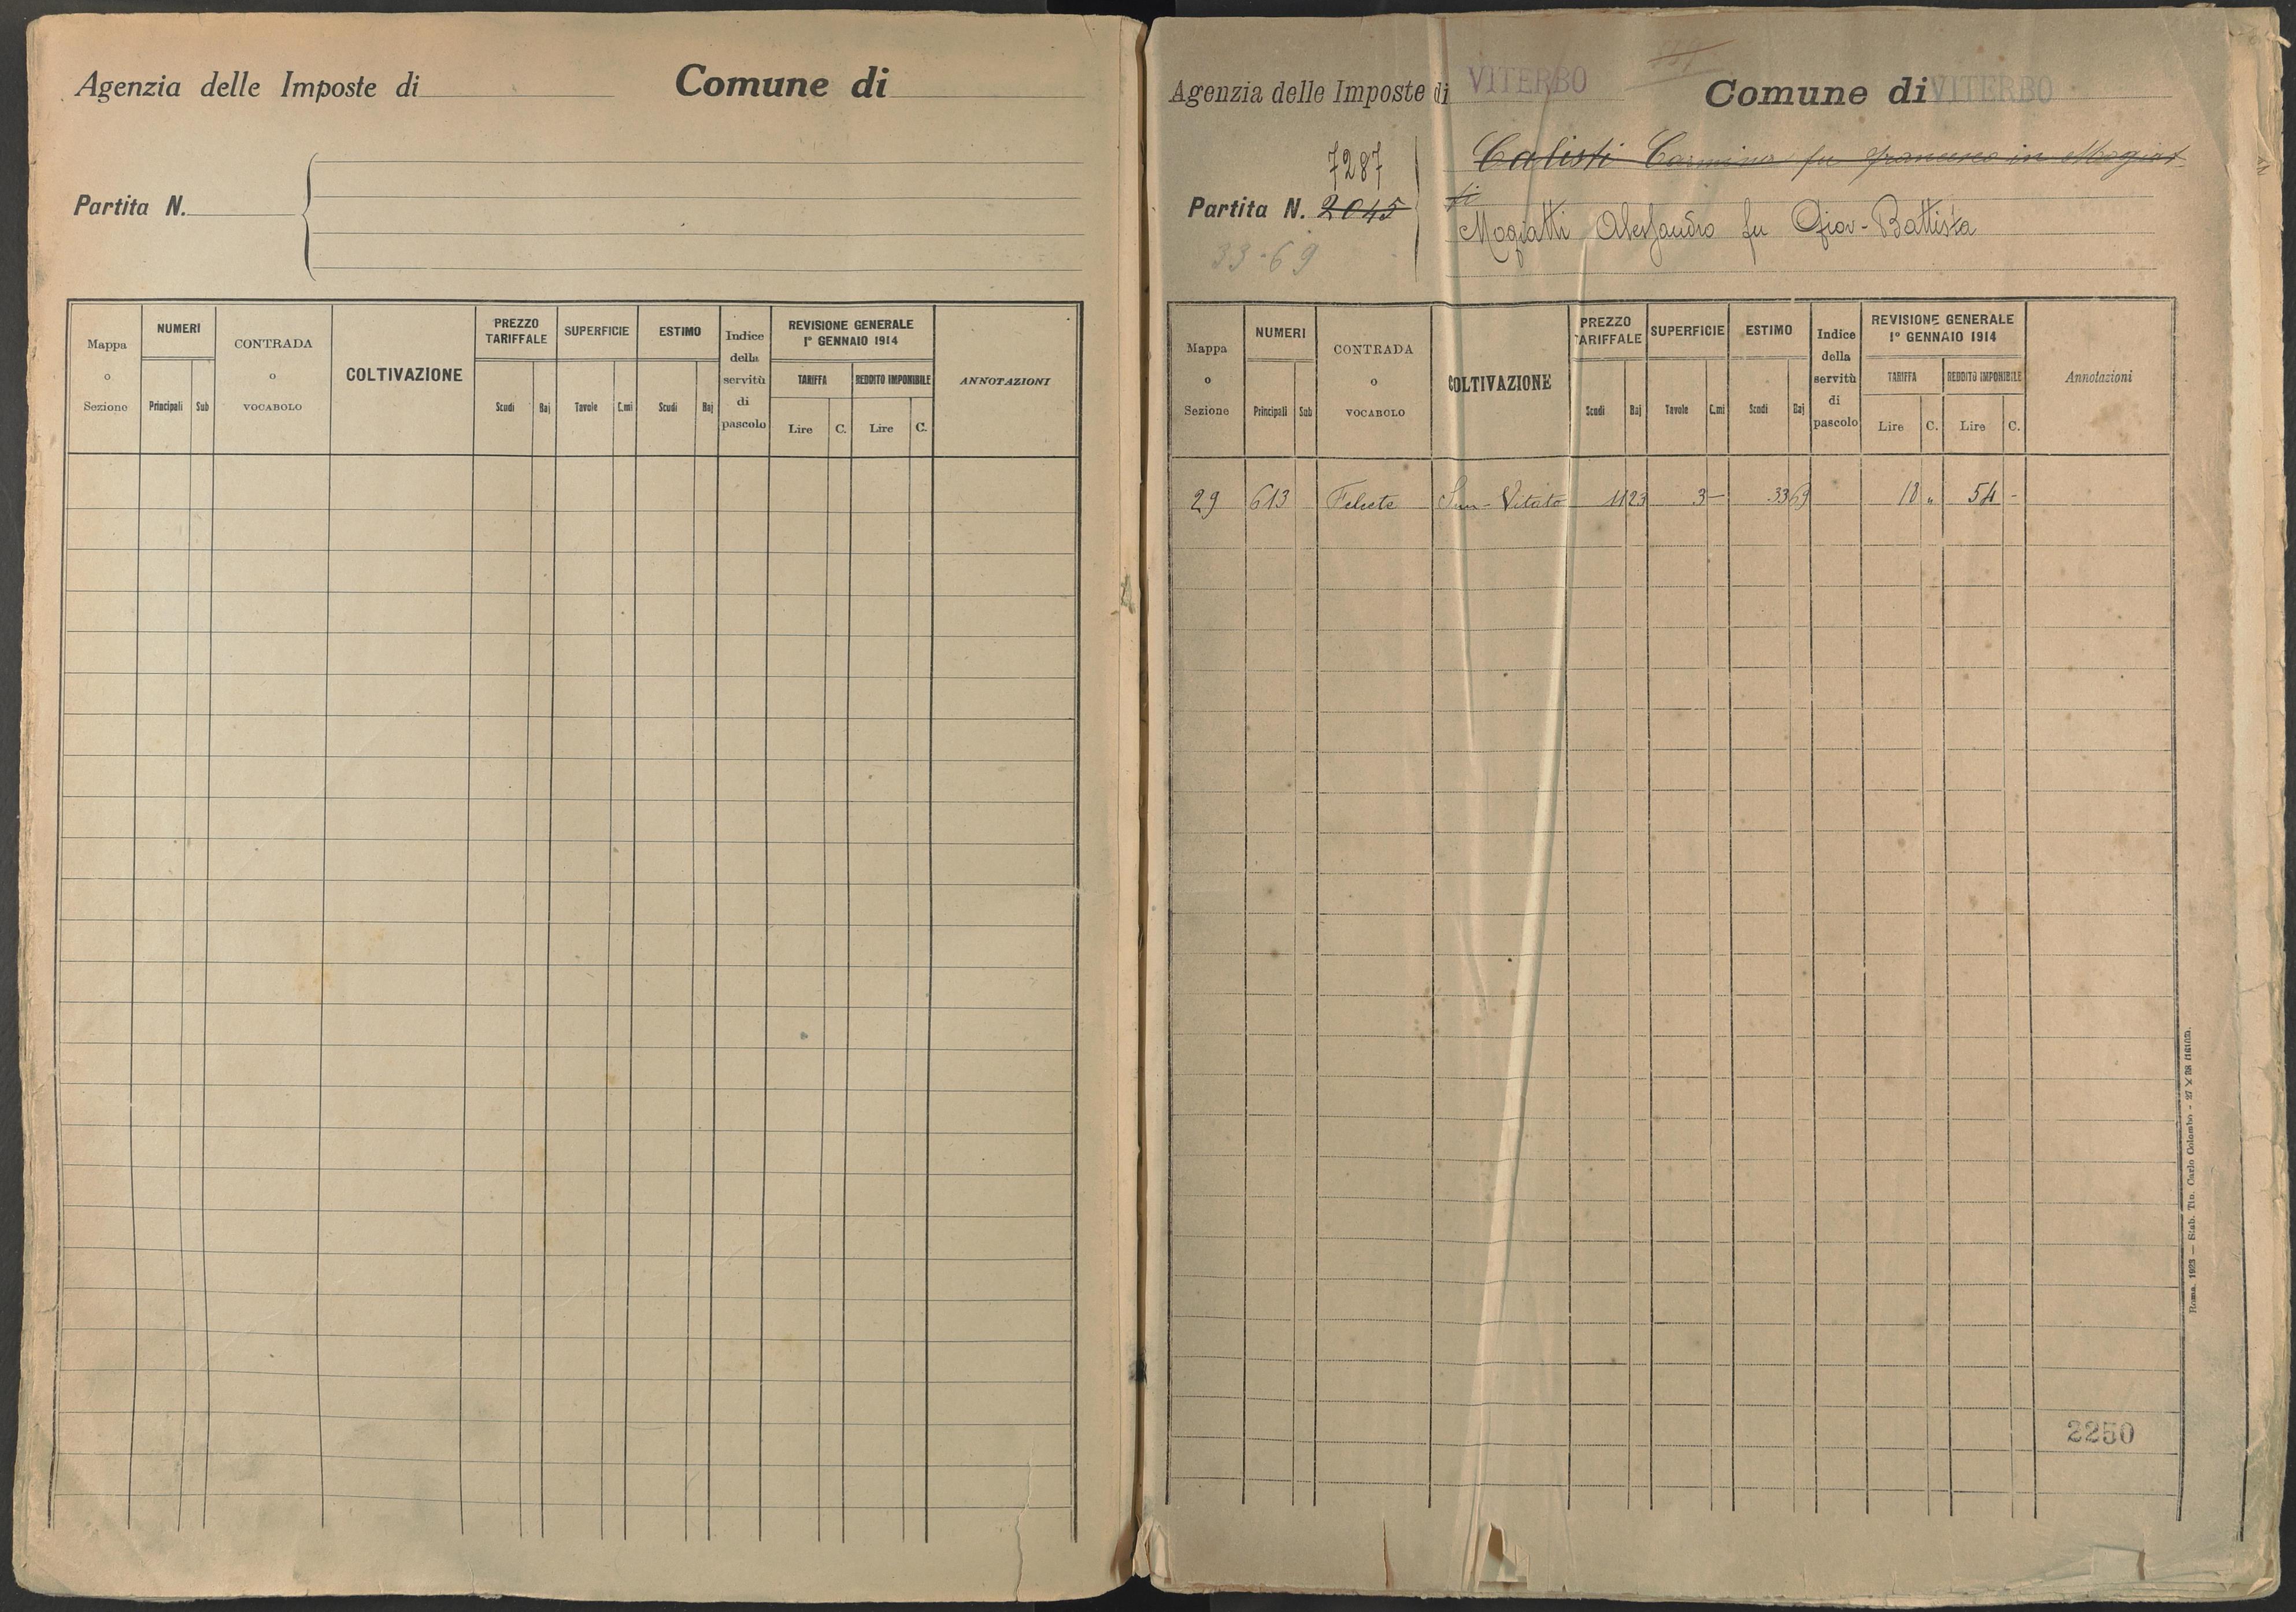 Agenzia delle Imposte di
Comune di
Partita N.
Mappa o Sezione
NUMERI
Principali
Sub
CONTRADA o VOCABOLO
COLTIVAZIONE
PREZZO TARIFFALE
Scudi
Baj
SUPERFICIE
Tavole
C.mi
ESTIMO
Scudi
Baj
Indice della servitù di pascolo
REVISIONE GENERALE
1° GENNAIO 1914
TARIFFA
REDDITO IMPONIBILE
Lire
C.
Lire
C.
ANNOTAZIONI
Agenzia delle Imposte di VITERBO
Comune di VITERBO
7287
Partita N. 2045
33-69
Calisti Carmina fu francesco in Mogiat
ti
Mogiatti Alessandro fu Giov-Battista
Mappa o Sezione
NUMERI
Principali
Sub
CONTRADA o VOCABOLO
COLTIVAZIONE
PREZZO TARIFFALE
Scudi
Baj
SUPERFICIE
Tavole
C.mi
ESTIMO
Scudi
Baj
Indice della servitù di pascolo
REVISIONE GENERALE
1° GENNAIO 1914
TARIFFA
REDDITO IMPONIBILE
Lire
C.
Lire
C.
Annotazioni
29 613 Felcete Sem-Vitato 11 23 3 - 33 69 18 " 54 -
2250
Roma, 1923 — Stab. Tip. Carlo Colombo - 27 X 38